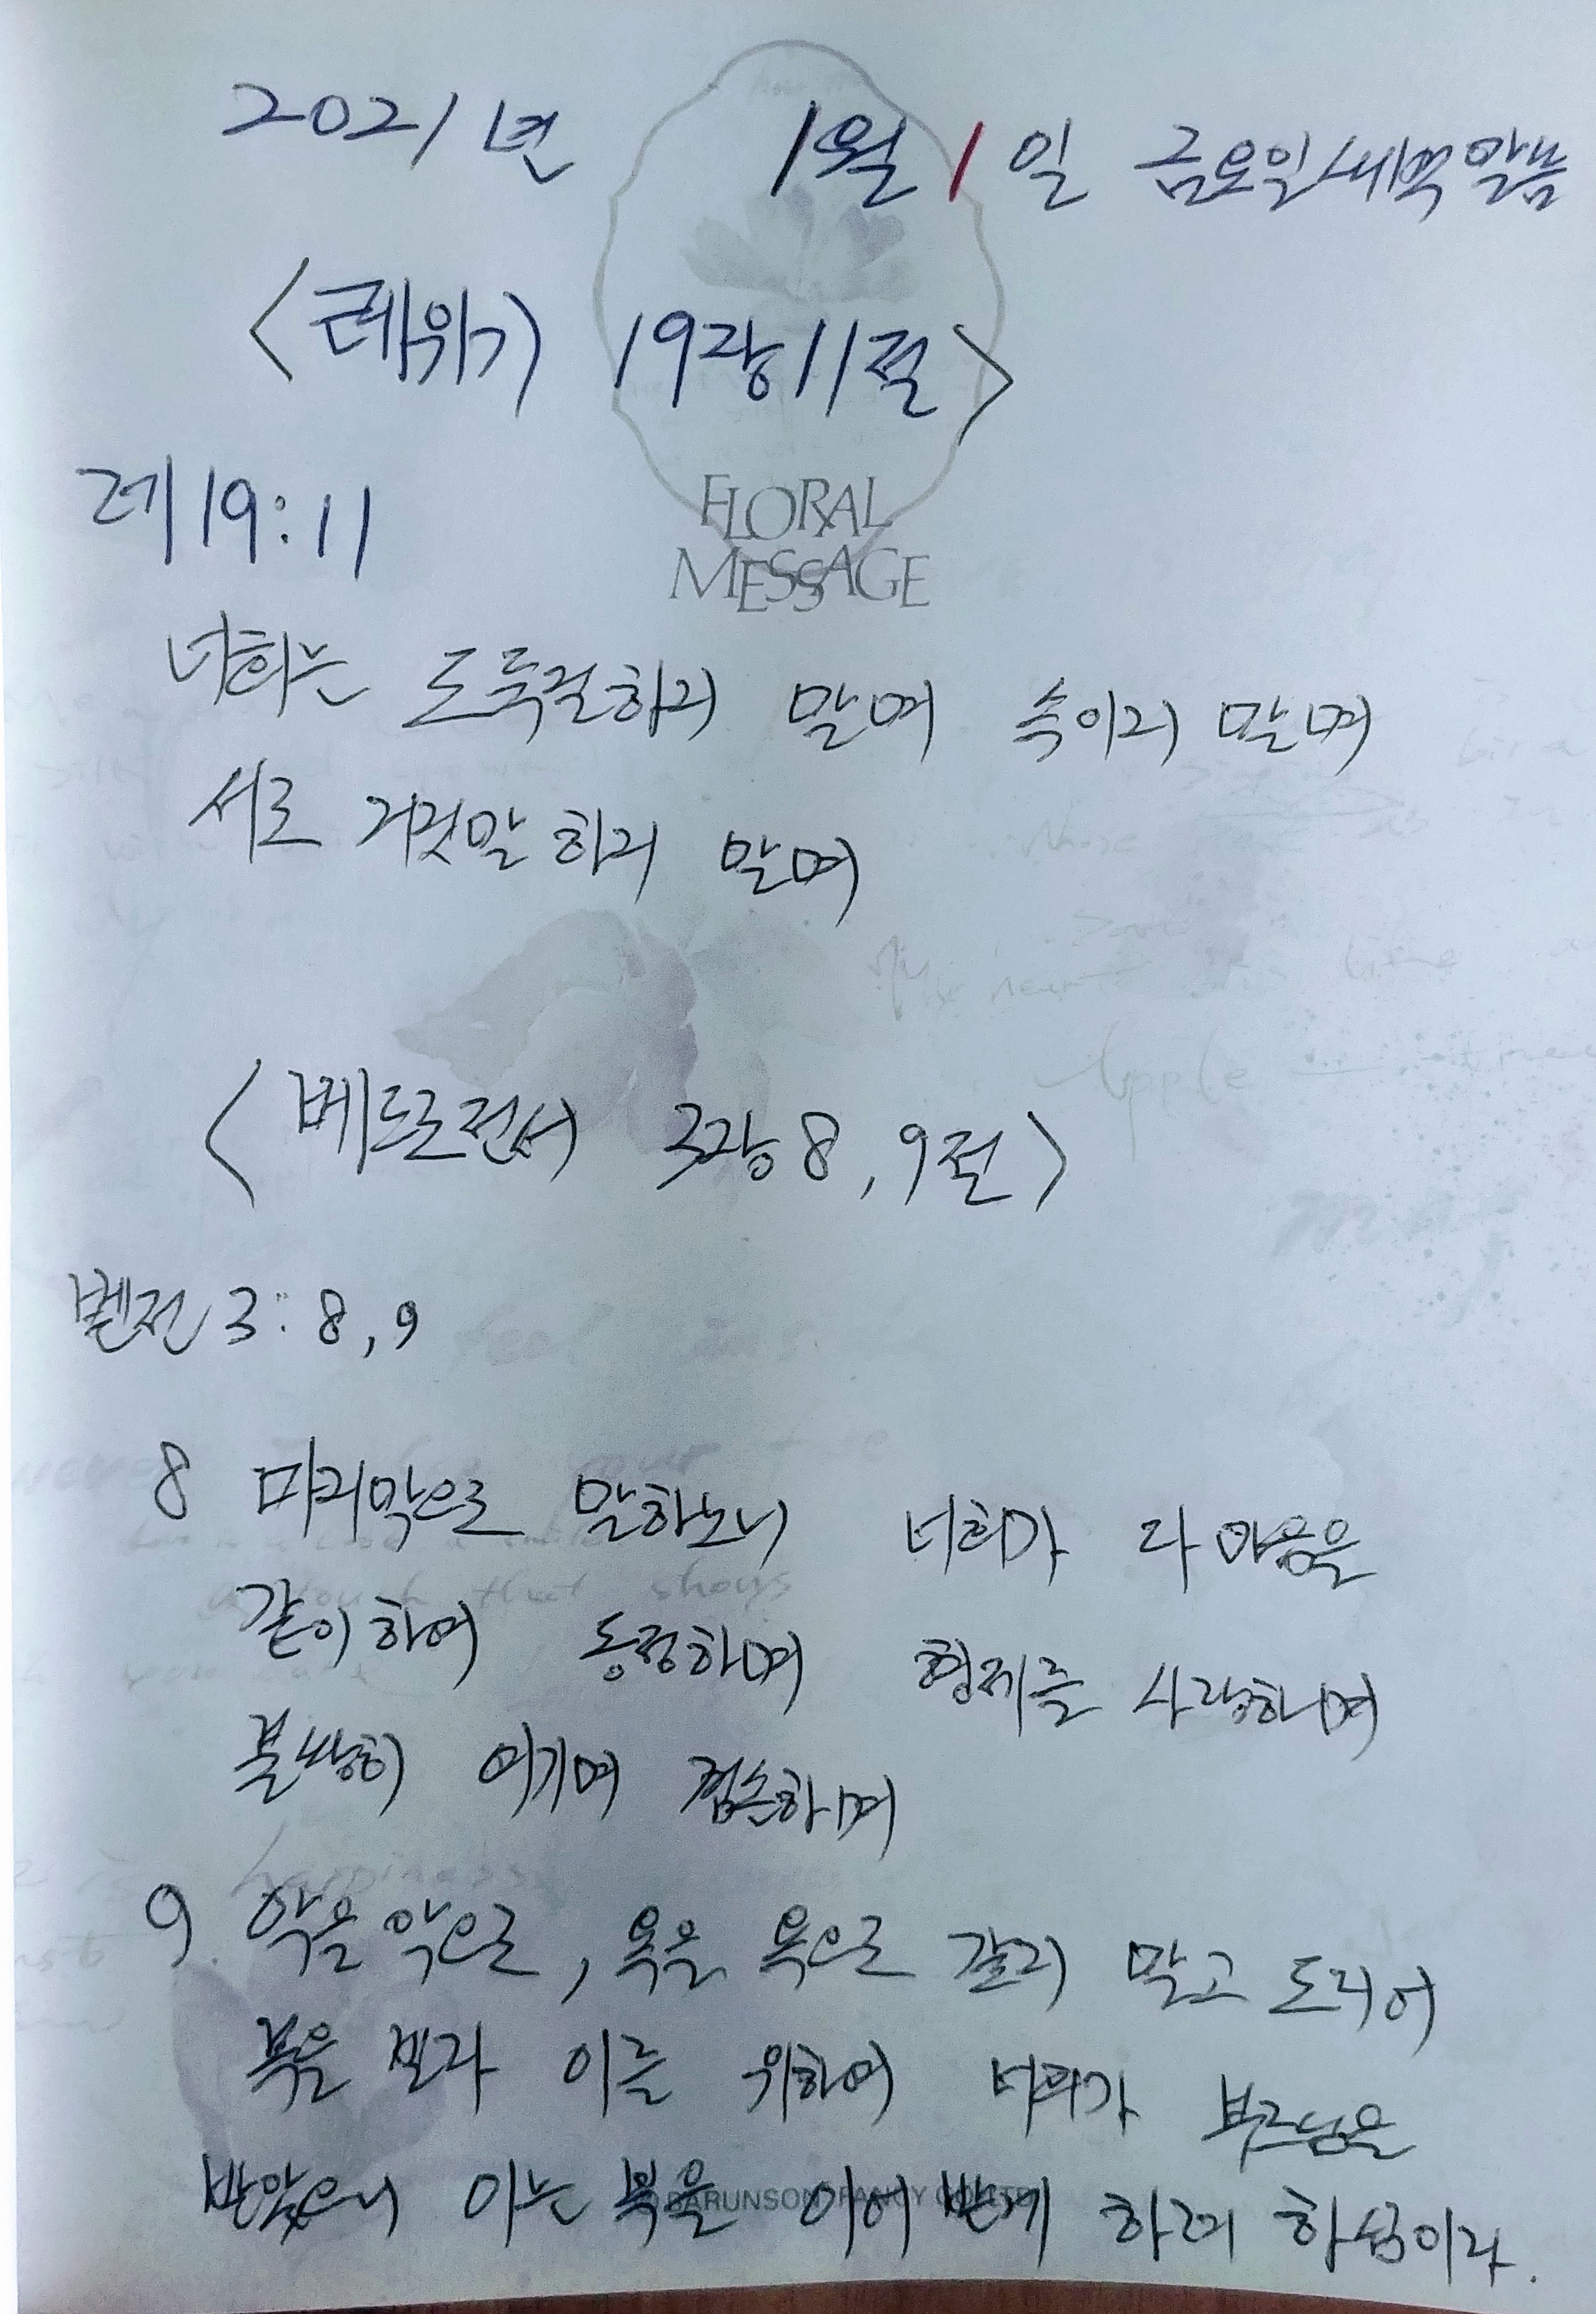 2021년 1월 1일 금요일새벽말씀
<레위기 19장11절>
레19:11
FLORAL
MESSAGE
너희는 도둑질하지 말며 속이지 말며
서로 거짓말 하지 말며
<베드로전서 3장8,9절>
벧전3:8,9
8 마지막으로 말하노니 너희가 다 마음을
같이하여 동정하며 형제를 사랑하며
불쌍히 여기며 겸손하며
9. 악을악으로, 욕을 욕으로 갚지 말고 도리어
복을 빌라 이를 위하여 너희가 부르심을
받았으니 이는 복을 이어받게 하려 하심이라.
BARUNSON FANCY CO., LTD